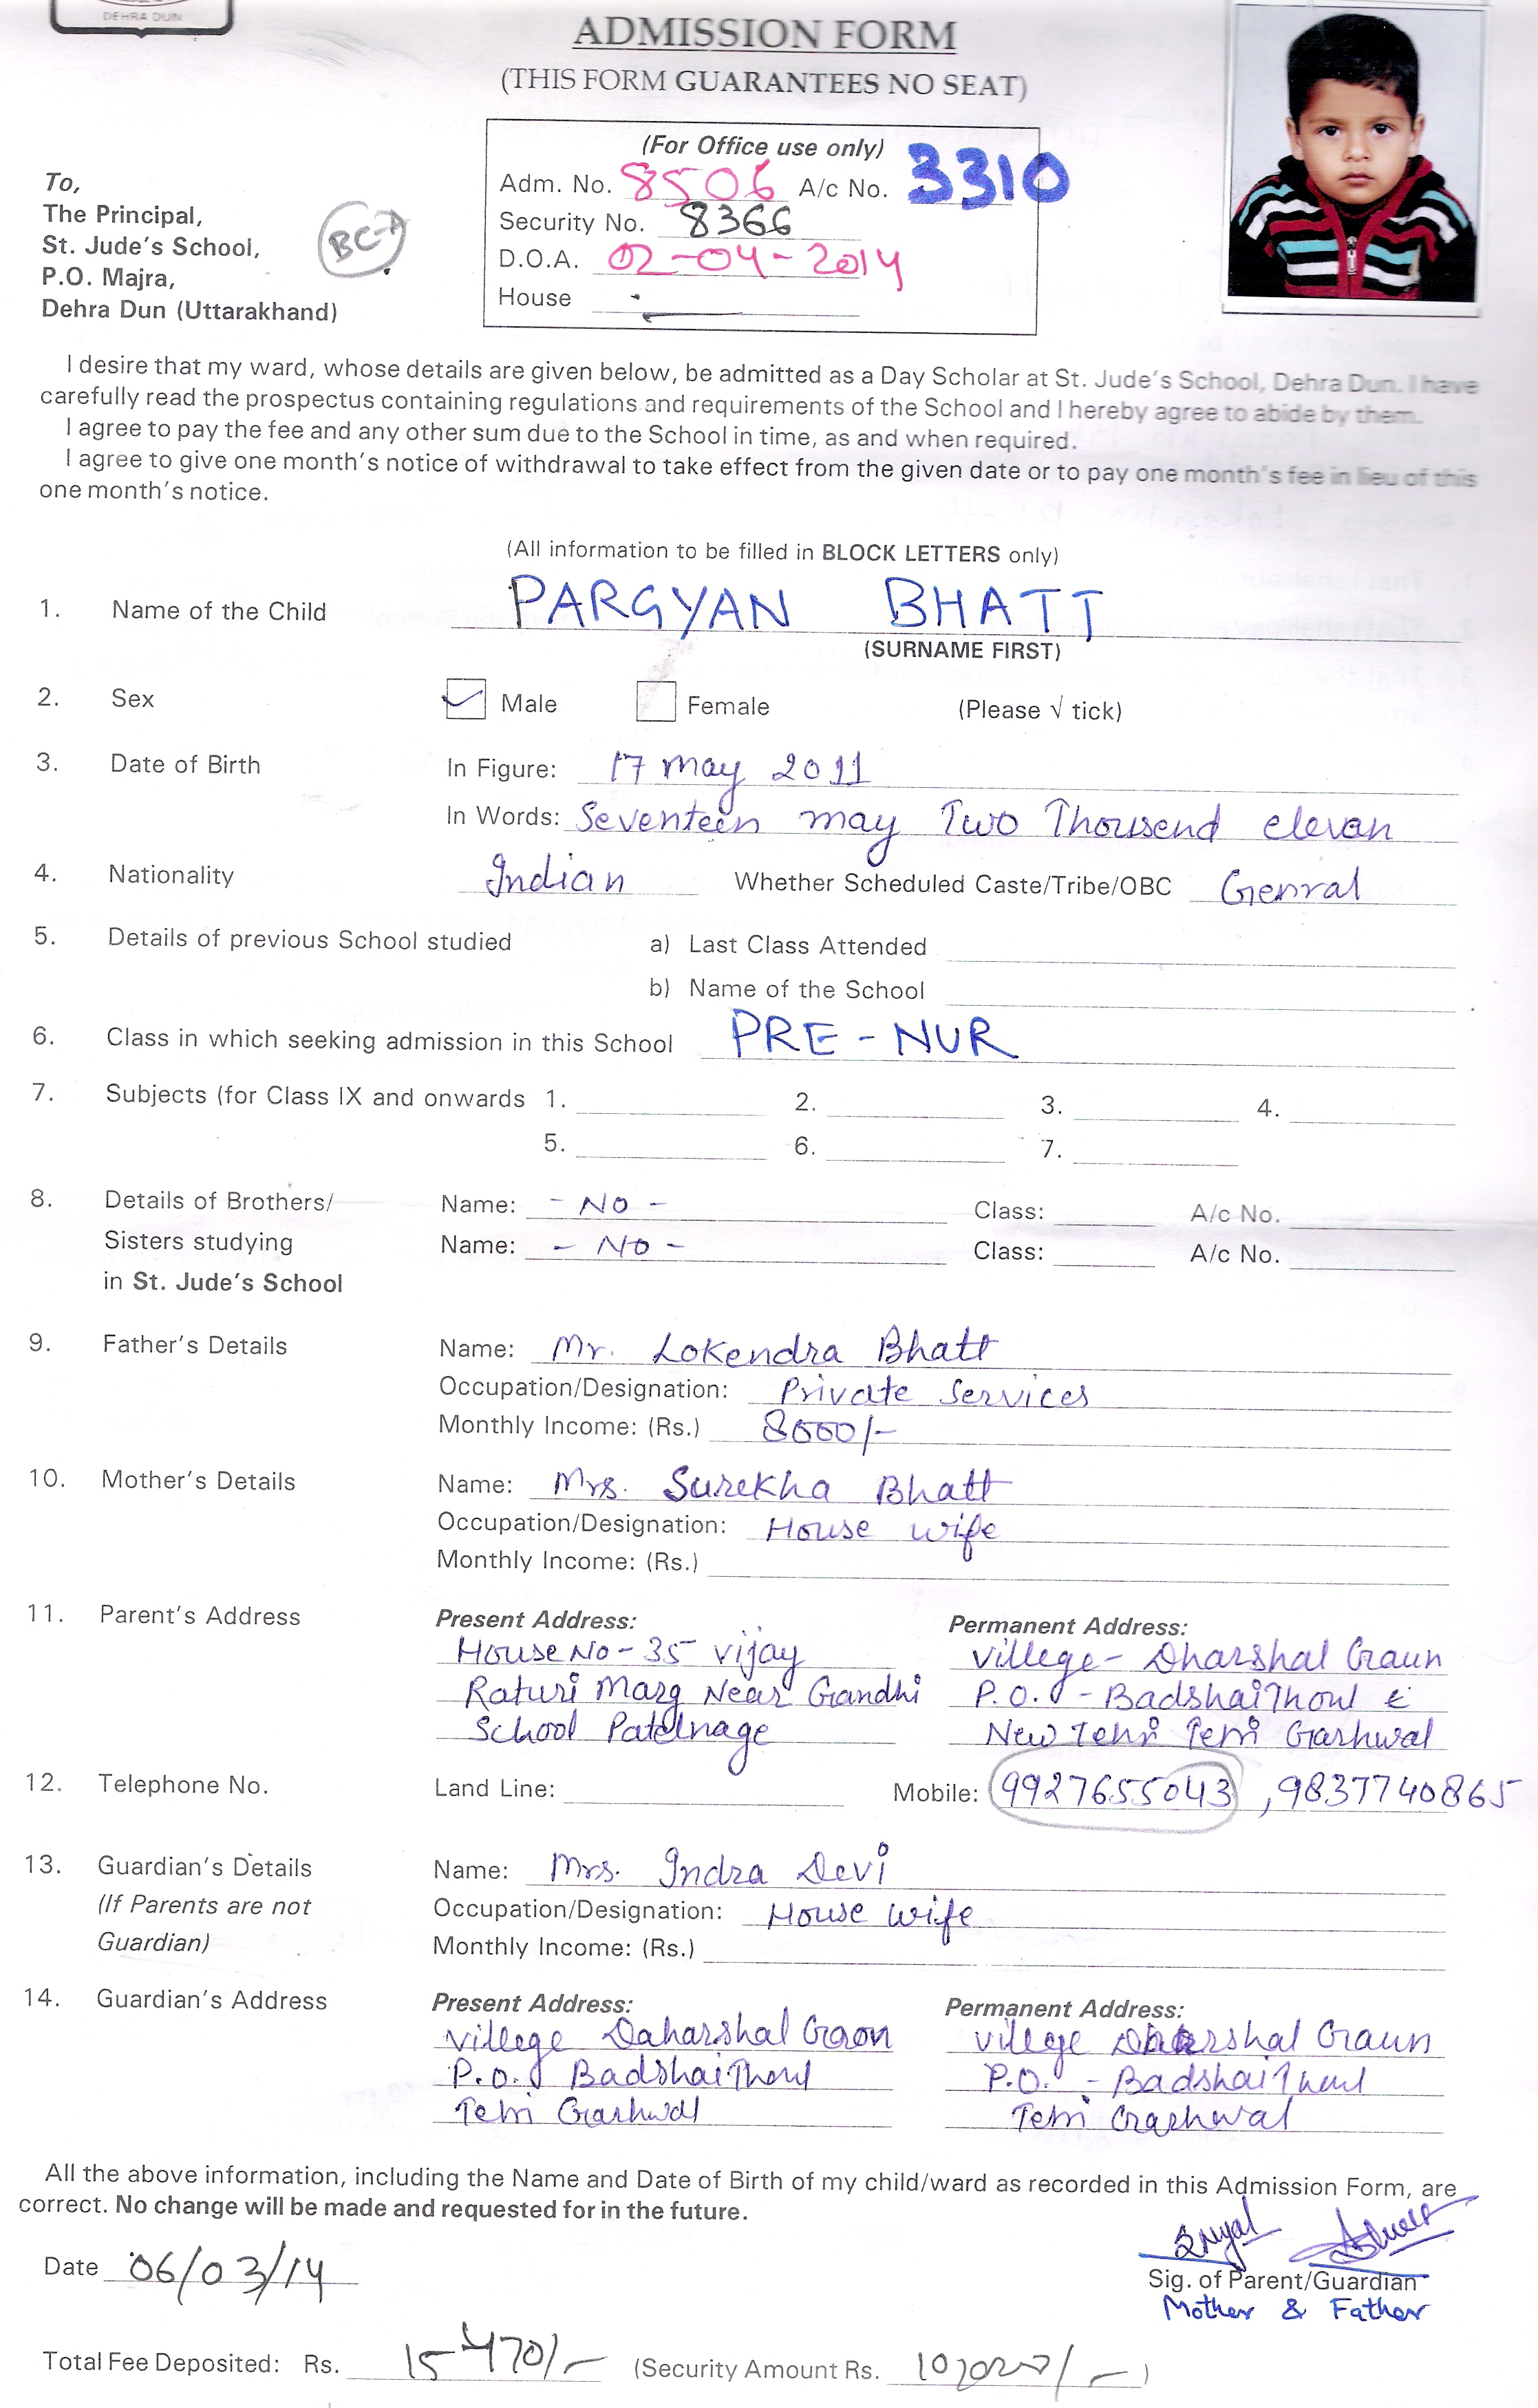 DEHRA DUN
ADMISSION FORM
(THIS FORM GUARANTEES NO SEAT)
(For Office use only)
Adm. No. 8506 A/c No. 3310
Security No. 8366
D.O.A. 02-04-2014
House
To,
The Principal,
St. Jude's School,
P.O. Majra,
Dehra Dun (Uttarakhand)
BC-A
I desire that my ward, whose details are given below, be admitted as a Day Scholar at St. Jude's School, Dehra Dun. I have
carefully read the prospectus containing regulations and requirements of the School and I hereby agree to abide by them.
I agree to pay the fee and any other sum due to the School in time, as and when required.
I agree to give one month's notice of withdrawal to take effect from the given date or to pay one month's fee in lieu of this
one month's notice.
(All information to be filled in BLOCK LETTERS only)
1. Name of the Child PARGYAN BHATT
(SURNAME FIRST)
2. Sex Male Female (Please √ tick)
3. Date of Birth In Figure: 17 may 2011
In Words: Seventeen may Two Thousend elevan
4. Nationality Indian Whether Scheduled Caste/Tribe/OBC Genral
5. Details of previous School studied a) Last Class Attended
b) Name of the School
6. Class in which seeking admission in this School PRE-NUR
7. Subjects (for Class IX and onwards 1. 2. 3. 4.
5. 6. 7.
8. Details of Brothers/ Name: - NO - Class: A/c No.
Sisters studying Name: - NO - Class: A/c No.
in St. Jude's School
9. Father's Details Name: Mr. Lokendra Bhatt
Occupation/Designation: Private Services
Monthly Income: (Rs.) 8000/-
10. Mother's Details Name: Mrs. Surekha Bhatt
Occupation/Designation: House wife
Monthly Income: (Rs.)
11. Parent's Address Present Address: Permanent Address:
House No-35 vijay villege- Dharshal Graun
Raturi Marg Near Gandhi P.O. - BadshaiThoul
School Patelnage New Tehri Tehri Garhwal
12. Telephone No. Land Line: Mobile: 9927655043, 9837740865
13. Guardian's Details Name: Mrs. Indra Devi
(If Parents are not Occupation/Designation: House wife
Guardian) Monthly Income: (Rs.)
14. Guardian's Address Present Address: Permanent Address:
villege Daharshal Graon villege Dharshal Graun
P.O. BadshaiThoul P.O. - BadshaiThoul
Tehri Garhwal Tehri Garhwal
All the above information, including the Name and Date of Birth of my child/ward as recorded in this Admission Form, are
correct. No change will be made and requested for in the future.
Date 06/03/14
Sig. of Parent/Guardian
Mother & Father
Total Fee Deposited: Rs. 15470/- (Security Amount Rs. )